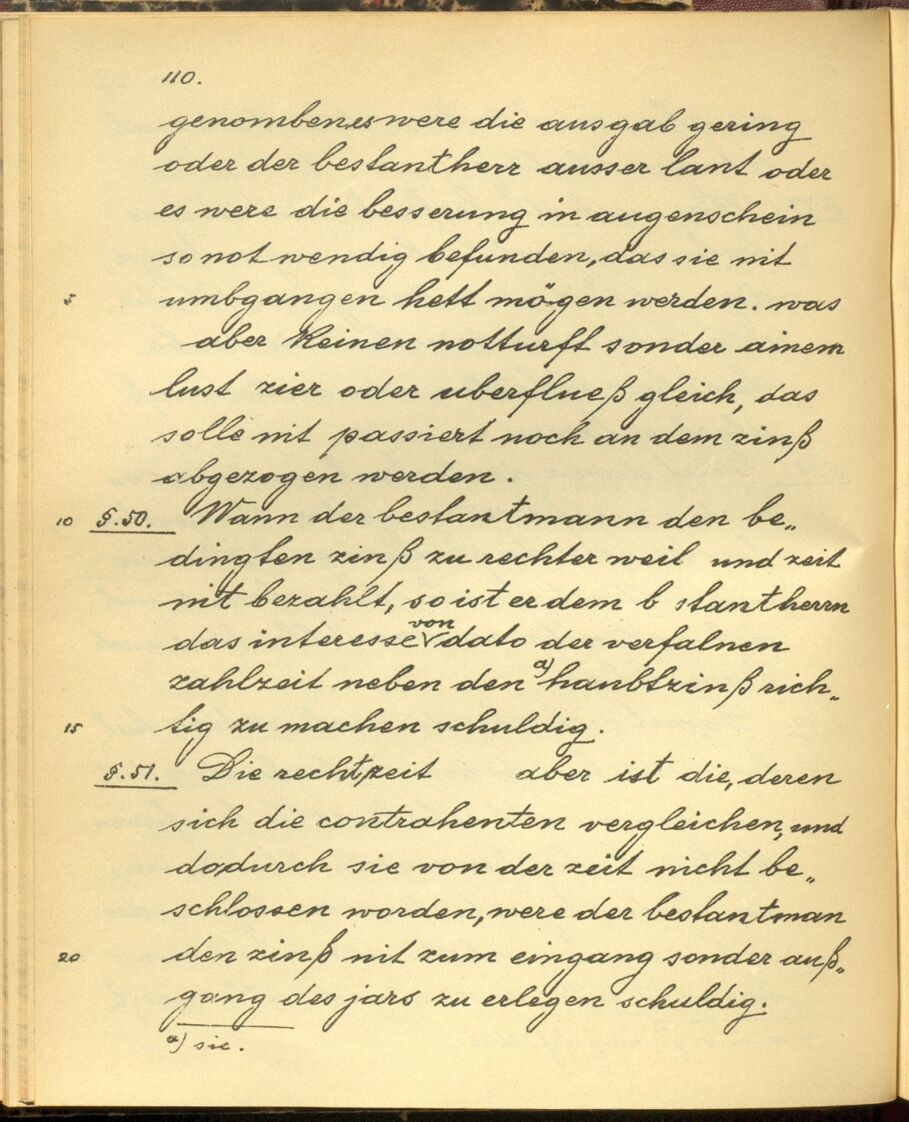 110.
genomben, es were die ausgab gering
oder der bestantherr ausser lant oder
es were die besserung in augenschein
so notwendig befunden, das sie nit
5 umbgangen hett mögen werden. was
aber keinen notturft sonder ainem
lust zier oder uberflueß gleich, das
solle nit passiert noch an dem zinß
abgezogen werden.
10 §.50. Wann der bestantmann den be„
dingten zinß zu rechter weil und zeit
nit bezahlt, so ist er dem b stantherrn
das interesse von dato der verfalnen
zahlzeit neben den a) haubtzinß rich„
15 tig zu machen schuldig.
§.51. Die rechtzeit aber ist die, deren
sich die contrahenten vergleichen, und
dodurch sie von der zeit nicht be„
schlossen worden, were der bestantman
20 den zinß nit zum eingang sonder auß„
gang des jars zu erlegen schuldig.
a) sic.